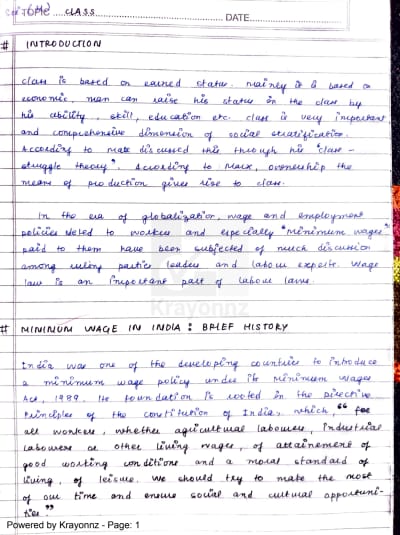 CLASS
DATE
# INTRODUCTION
class is based on earned status. mainly it is based on
economic. man can raise his status in the class by
his ability, skill, education etc. class is very important
and comprehensive dimension of social stratification.
According to make discussed this through his "class-
struggle theory". According to Marx, ownership the
means of production gives rise to class.
In the era of globalization, wage and employment
policies related to workers and especially "minimum wages"
paid to them have been subjected of much discussion
among ruling parties leaders and labour experts. Wage
law is an important part of labour laws.
Krayonnz
# MINIMUM WAGE IN INDIA: BRIEF HISTORY
India was one of the developing countries to introduce
a minimum wage policy under its Minimum Wages
Act, 1989. Its foundation is rooted in the Directive
Principles of the constitution of India, which, "for
all workers, whether agricultural labourers, Industrial
labourers or other living wages, of attainement of
good working conditions and a moral standard of
living, of leisure. We should try to make the most
of our time and ensure social and cultural opportuni-
ties"
Powered by Krayonnz - Page: 1